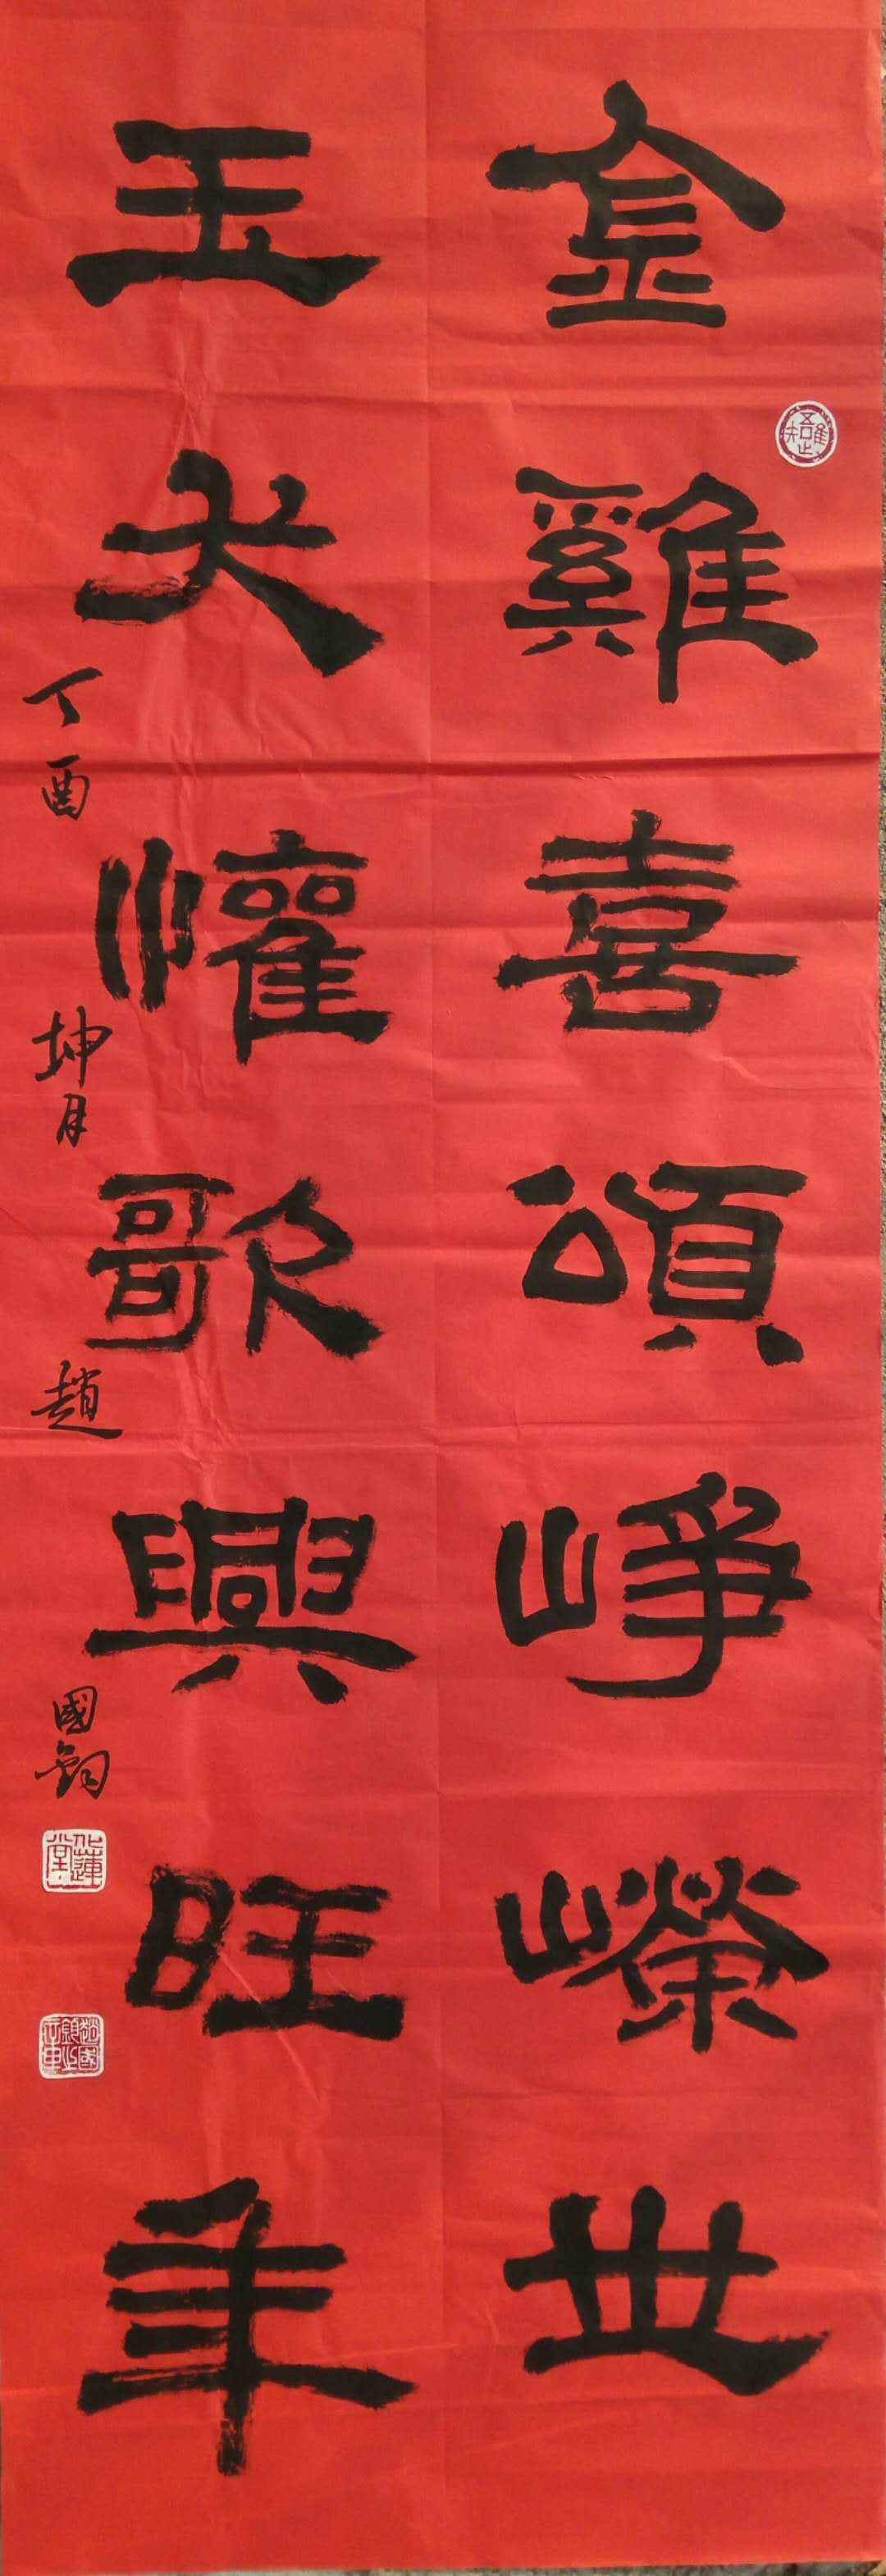 金雞喜頌崢嶸世
玉犬懽歌興旺年
丁酉 坤月 趙國鈞